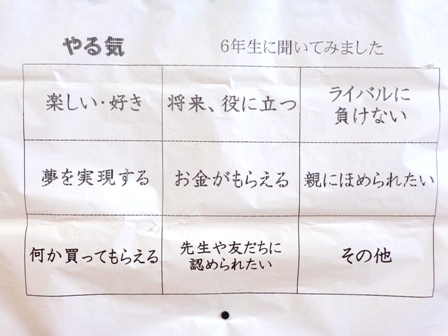 やる気 6年生に聞いてみました
楽しい・好き 将来、役に立つ ライバルに
負けない
夢を実現する お金がもらえる 親にほめられたい
何か買ってもらえる 先生や友だちに
認められたい その他